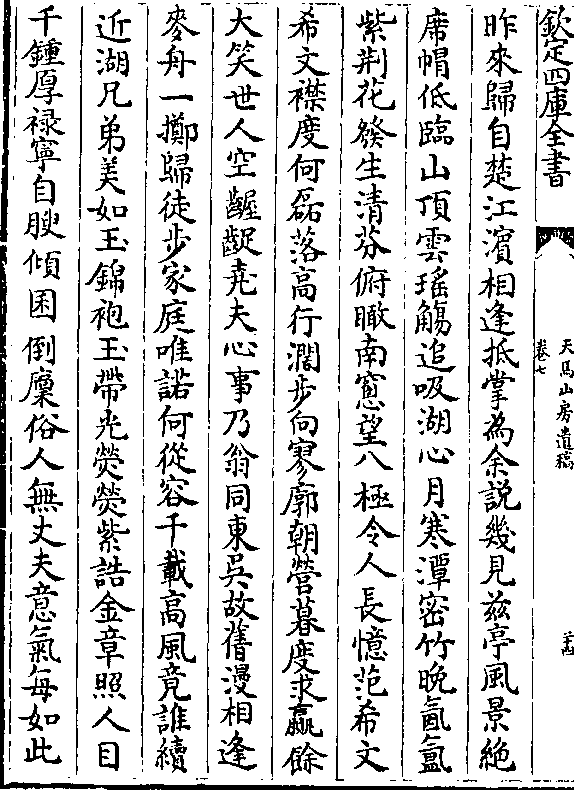 欽定四庫全書
天馬山房遺稿
卷七
二十四
昨來歸自楚江濱相逢抵掌為余説幾見兹亭風景絶
席帽低臨山頂雲瑤觴追吸湖心月寒潭密竹晩氤氲
紫荆花發生清芬俯瞰南窻望八極令人長憶范希文
希文襟度何磊落高行濶步向寥廓朝營暮度求贏餘
大笑世人空齷齪堯夫心事乃翁同東吳故舊漫相逢
麥舟一擲歸徒步家庭唯諾何從容千載高風竟誰續
近湖兄弟美如玉錦袍玉帶光熒熒紫誥金章照人目
千鍾厚禄寧自腴傾囷倒廩俗人無丈夫意氣每如此